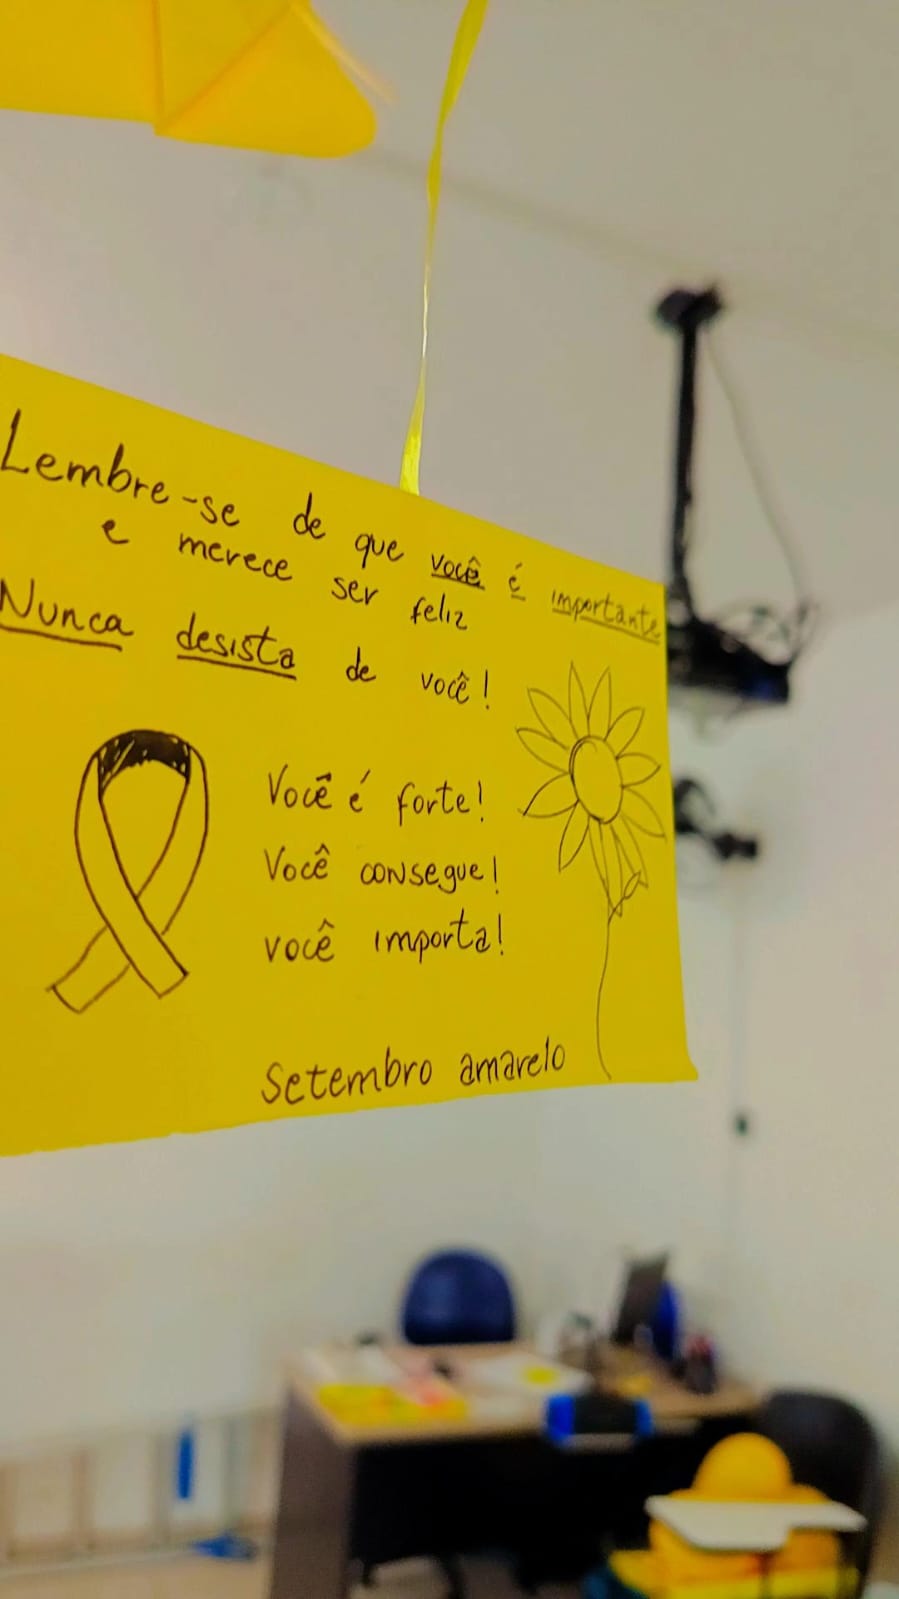 Lembre-se de que você é importante
e merece ser feliz
Nunca desista de você!
Você é forte!
Você consegue!
você importa!
Setembro amarelo